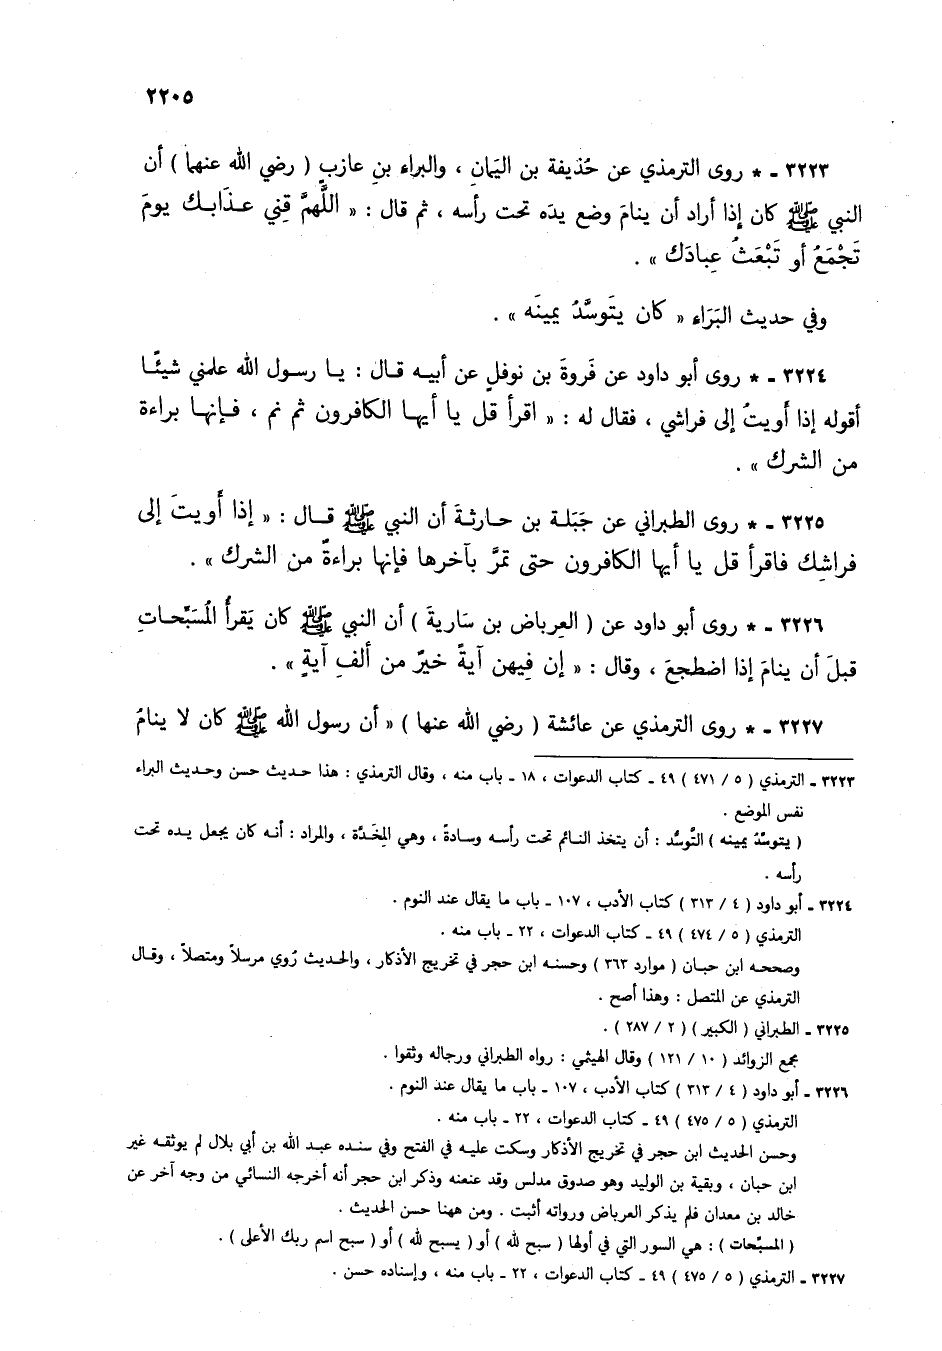 ٢٢٠٥
٣٢٢٣ - * روى الترمذي عن حُذيفة بن اليَمانِ ، والبراء بنِ عازبٍ ( رضي الله عنهما ) أن
النبي ﷺ كان إذا أراد أن ينامَ وضع يدَه تحت رأسه ، ثم قال : « اللَّهمَّ قِني عـذَابـك يومَ
تَجْمَعُ أو تَبْعَثُ عِبادَك » .
وفي حديث البَرَاء « كَان يتَوسَّدُ يمينَه » .
٣٢٢٤ - * روى أبو داود عن فَروةَ بن نوفلٍ عن أبيه قـال : يـا رسول الله علمني شيئًـا
أقوله إذا أَويتُ إلى فراشي ، فقال له : « اقرأ قل يا أيهـا الكافرون ثم نم ، فـإنهـا براءة
من الشرك » .
٣٢٢٥ - * روى الطبراني عن جَبَلـة بن حـارثـةَ أن النبي ﷺ قـال : « إذا أَويتَ إلى
فراشِك فاقرأ قل يا أيها الكافرون حتى تمرَّ بآخرها فإنها براءةٌ من الشرك » .
٣٢٢٦ - * روى أبو داود عن ( العِرباض بن سَاريةَ ) أن النبي ﷺ كان يَقرأُ المُسَبِّحـاتِ
قبلَ أن ينامَ إذا اضطجعَ ، وقال : « إن فِيهن آيةً خيرٌ من ألفِ آيةٍ » .
٣٢٢٧ - * روى الترمذي عن عائشة ( رضي الله عنها ) « أن رسول الله ﷺ كان لا ينامُ
٣٢٢٣ - الترمذي ( ٥ / ٤٧١ ) ٤٩ - كتاب الدعوات ، ١٨ - باب منه ، وقال الترمذي : هذا حـديث حسن وحديث البراء
نفس الموضع .
( يتوسَّدُ يمينه ) التَّوسُّد : أن يتخذ النـائم تحت رأسـه وسـادةً ، وهي المِخَـدَّة ، والمراد : أنـه كان يجعل يـده تحت
رأسه .
٣٢٢٤ - أبو داود ( ٤ / ٣١٣ ) كتاب الأدب ، ١٠٧ - باب ما يقال عند النوم .
الترمذي ( ٥ / ٤٧٤ ) ٤٩ - كتاب الدعوات ، ٢٢ - باب منه .
وصححـه ابن حبـان ( موارد ٣٦٣ ) وحسنـه ابن حجر في تخريج الأذكار ، والحـديث رُوي مرسلاً ومتصلاً ، وقـال
الترمذي عن المتصل : وهذا أصح .
٣٢٢٥ - الطبراني ( الكبير ) ( ٢ / ٢٨٧ ) .
مجمع الزوائد ( ١٠ / ١٢١ ) وقال الهيثمي : رواه الطبراني ورجاله وثقوا .
٣٢٢٦ - أبو داود ( ٤ / ٣١٣ ) كتاب الأدب ، ١٠٧ - باب ما يقال عند النوم .
الترمذي ( ٥ / ٤٧٥ ) ٤٩ - كتاب الدعوات ، ٢٢ - باب منه .
وحسن الحديث ابن حجر في تخريج الأذكار وسكت عليـه في الفتح وفي سنـده عبـد الله بن أبي بلال لم يوثقـه غير
ابن حبان ، وبقية بن الوليد وهو صدوق مدلس وقد عنعنه وذكر ابن حجر أنه أخرجه النسائي من وجه آخر عن
خالد بن معدان فلم يذكر العرباض ورواته أثبت . ومن ههنا حسن الحديث .
( المسبِّحات ) : هي السور التي في أولها ( سبح لله ) أو ( يسبح لله ) أو ( سبح اسم ربك الأعلى ) .
٣٢٢٧ - الترمذي ( ٥ / ٤٧٥ ) ٤٩ - كتاب الدعوات ، ٢٢ - باب منه ، وإسناده حسن .